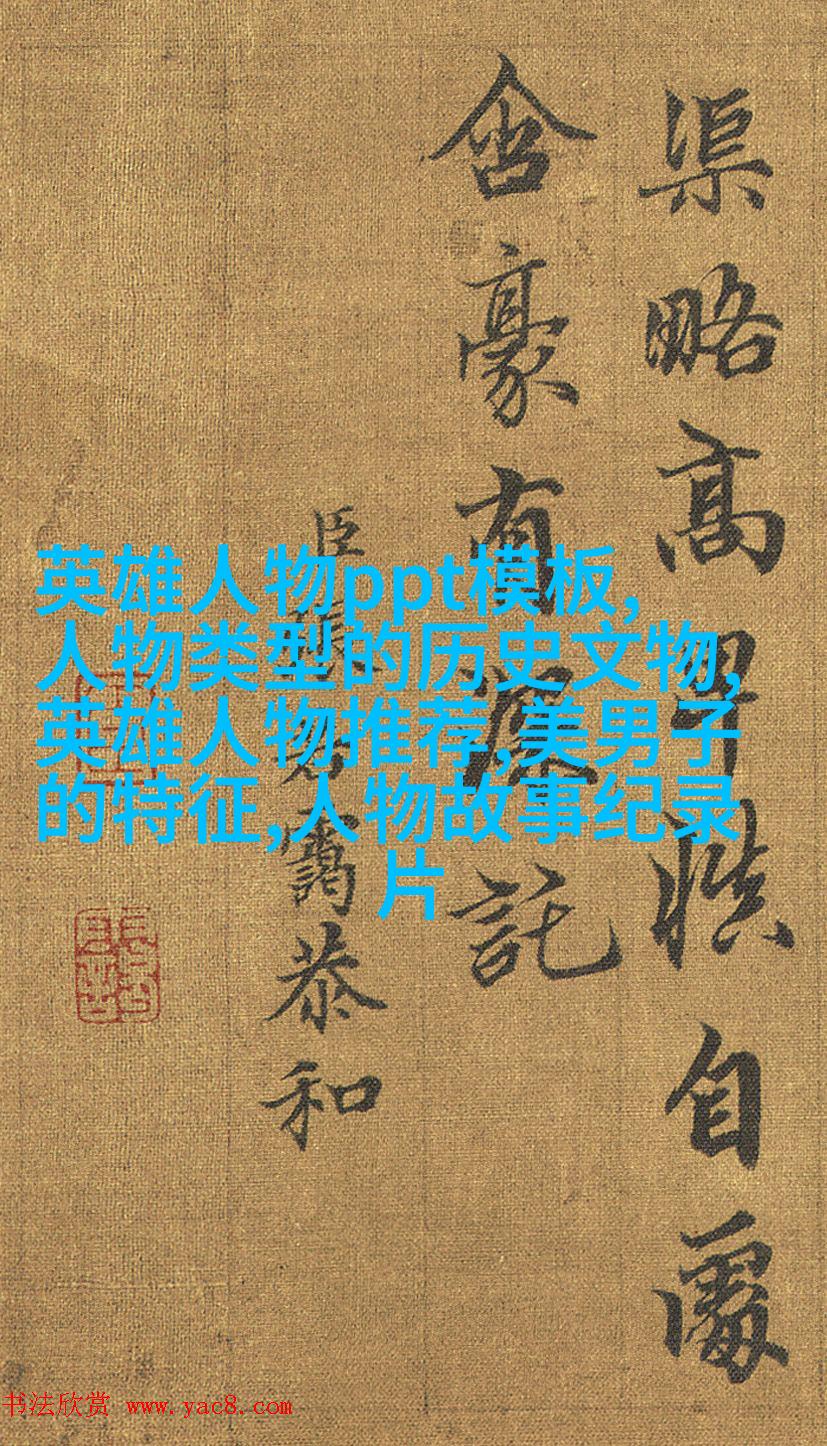 渠略高卑慎自處
含豪有託
臣張若靄恭和
英雄人物ppt模板,
人物类型的历史文物,
英雄人物推荐,美男子
的特征,人物故事纪录
片
书法欣赏 www.yac8.com